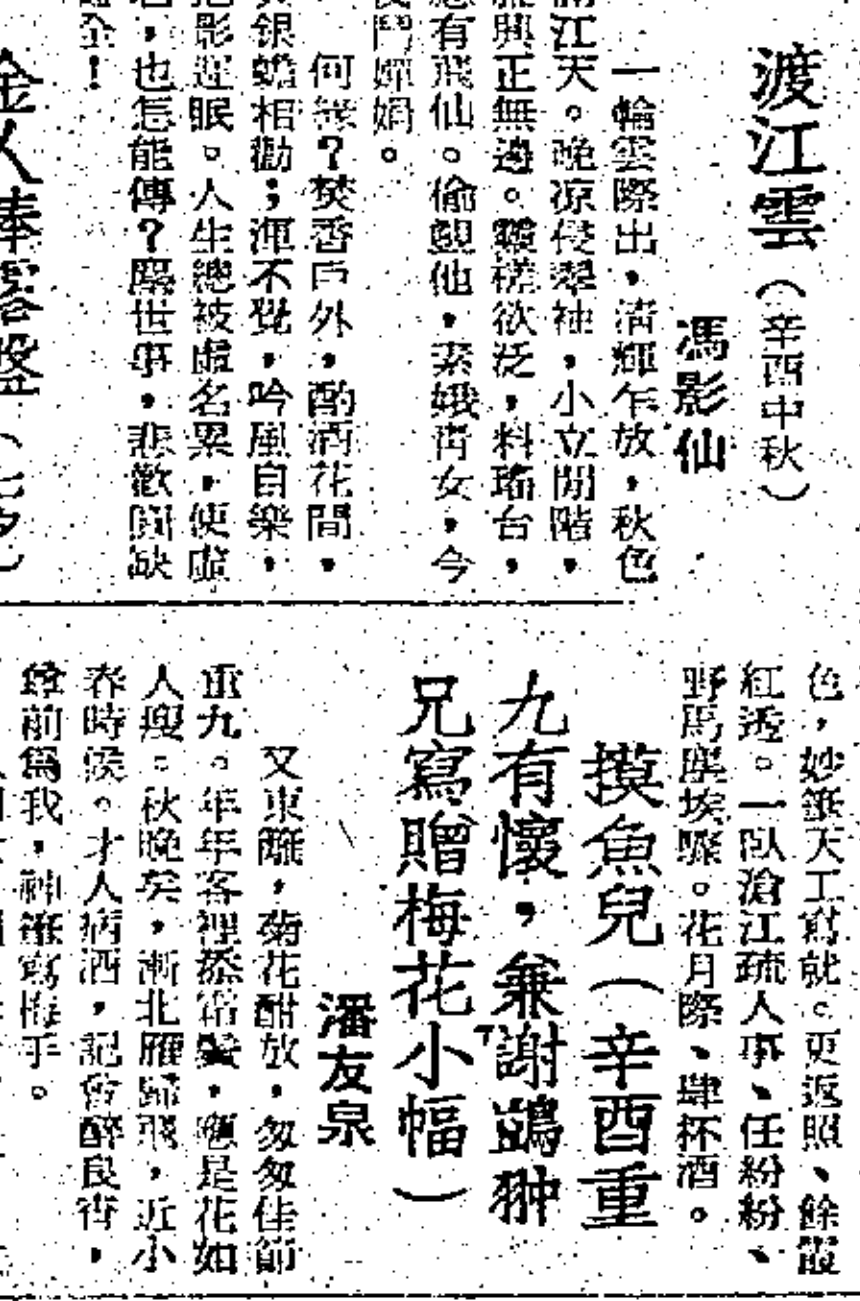 渡江雲（辛酉中秋）
馮影仙
一輪雲際出，清輝乍放，秋色
江天。晚凉侵翠袖，小立閒階，
興正無邊。靈槎欲泛，料瑤台，
有飛仙。偷覷他，素娥靑女，今
鬥嬋娟。
何飛？焚香戶外，酌酒花間，
銀蟾相勸；渾不覺，吟風自樂，
影遲眠。人生總被虛名累，便虛
，也怎能傳？塵世事，悲歡圓缺
全！
金人捧露盤（七夕）
色，妙筆天工寫就。更返照、餘霞
紅透。一臥滄江疏人事、任紛紛、
野馬塵埃驟。花月際、肆杯酒。
摸魚兒（辛酉重
九有懷，兼謝鷁翀
兄寫贈梅花小幅）
潘友泉
又東籬，菊花酣放，匆匆佳節
重九。年年客裡添霜鬢，應是花如
人瘦。秋晚矣，漸北雁歸飛，近小
春時候。才人病酒，記曾醉良宵，
鐙前爲我，神筆寫梅手。